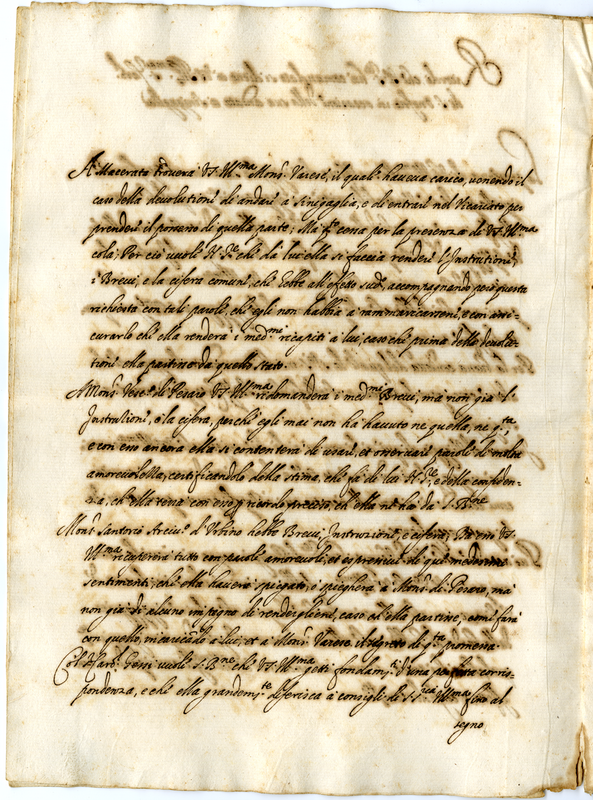 A Macerata troverà V.S. Ill.ma Mons.r Varese, il quale haveva carico, venendo il
caso della devolutione di andare à Sinigaglia, e di entrare nel Vicariato per
prendere il possesso di quella parte; Mà per la presenza di V.S. Ill.ma
colà; Per ciò vuole N. S.re che dà lui ella si faccia rendere l'Instruttione,
i Brevi, e la cifera comune, che hebbe all'effetto sud.o accompagnando però questa
richiesta con tali parole, che egli non habbia à rammaricarsene, e con assi-
curarlo che ella renderà i med.mi ricapiti à lui, caso che prima della devolu-
tione ella partisse da quello stato.
A Mons.r Vesc.o di Pesaro V.S. Ill.ma ridomanderà i med.mi Brevi, mà non già l'
Instruttione, e la cifera, perche egli mai non hà havuto ne quella, ne q.ta,
e con esso ancora ella si contenterà di usare, et osservare parole di molta
amorevolezza, certificandolo della stima, che fà di lui N. S.re, e della confiden-
za, ch'ella terrà con esso per ricordo preciso, ch'ella ne hà da S. B.ne
Mons.r Santorio Arciv.o d'Urbino hebbe Brevi, Instruzzione, e cifera; Da esso V.S.
Ill.ma ricupererà tutto con parole amorevoli, et espressive di quei medesimi
sentimenti, che ella haverà spiegati, ò spiegherà à Mons.r di Pesaro, mà
non già di alcuno impegno di renderglieli, caso ch'ella partisse, come farà
con quello, incaricando à lui, et à Mons.r Varese il segreto di q.ta promessa.
Col S. Card. Gessi vuole S. B.ne che V.S. Ill.ma getti fondam.ti d'una perfetta corris-
pondenza, e che ella grandem.te diferisca à consigli di S. S.ria Ill.ma fino al
segno